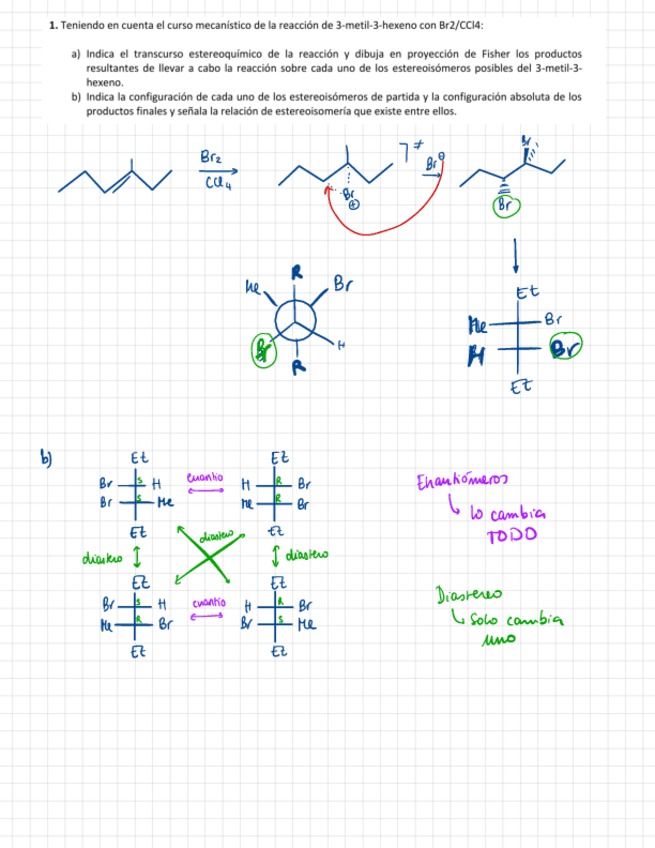 1. Teniendo en cuenta el curso mecanístico de la reacción de 3-metil-3-hexeno con Br2/CCl4:
a) Indica el transcurso estereoquímico de la reacción y dibuja en proyección de Fisher los productos
resultantes de llevar a cabo la reacción sobre cada uno de los estereoisómeros posibles del 3-metil-3-
hexeno.
b) Indica la configuración de cada uno de los estereoisómeros de partida y la configuración absoluta de los
productos finales y señala la relación de estereoisomería que existe entre ellos.
Br2
CCl4
Br
⊕
7≠
Br⊖
Br
Br
Me R Br
Br R H
Et
Me Br
H Br
Et
b)
Et Et
Br S H enantio H R Br
Br S Me Me R Br
Et diastereo Et
diastereo diastereo
Et Et
Br S H enantio H R Br
Me R Br Br S Me
Et Et
Enantiómeros
lo cambia
TODO
Diastereo
Solo cambia
uno